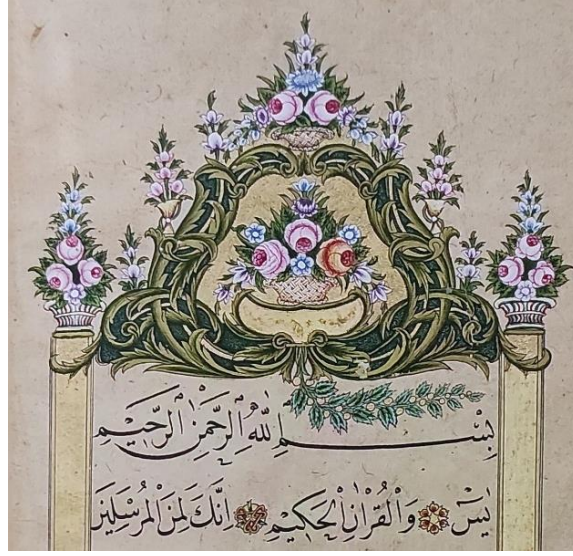 بِسْمِ اللّٰهِ الرَّحْمٰنِ الرَّحِيمِ
يٰسٓ وَالْقُرْاٰنِ الْحَكِيمِ اِنَّكَ لَمِنَ الْمُرْسَلِينَ